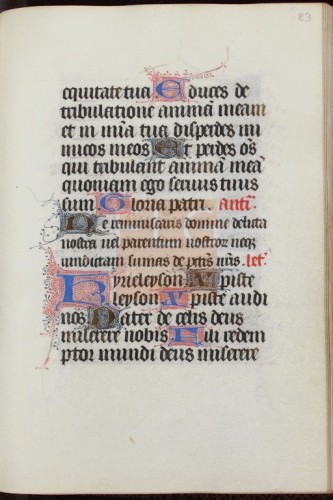 83
equitate tua Educes de
tribulatione animā meam
et in mīa tua disperdes ini
micos meos Et perdes ōs
qui tribulant animā meā
quoniam ego seruus tuus
sum Gloria patri. Antī.
Ne reminiscaris domine delicta
nostra uel parentum nostror neq
uindictam sumas de pctis nris. let.
Kyrieleyson Xpiste
leyson Xpiste audi
nos Pater de celis deus
miserere nobis Fili redem
ptor mundi deus miserere